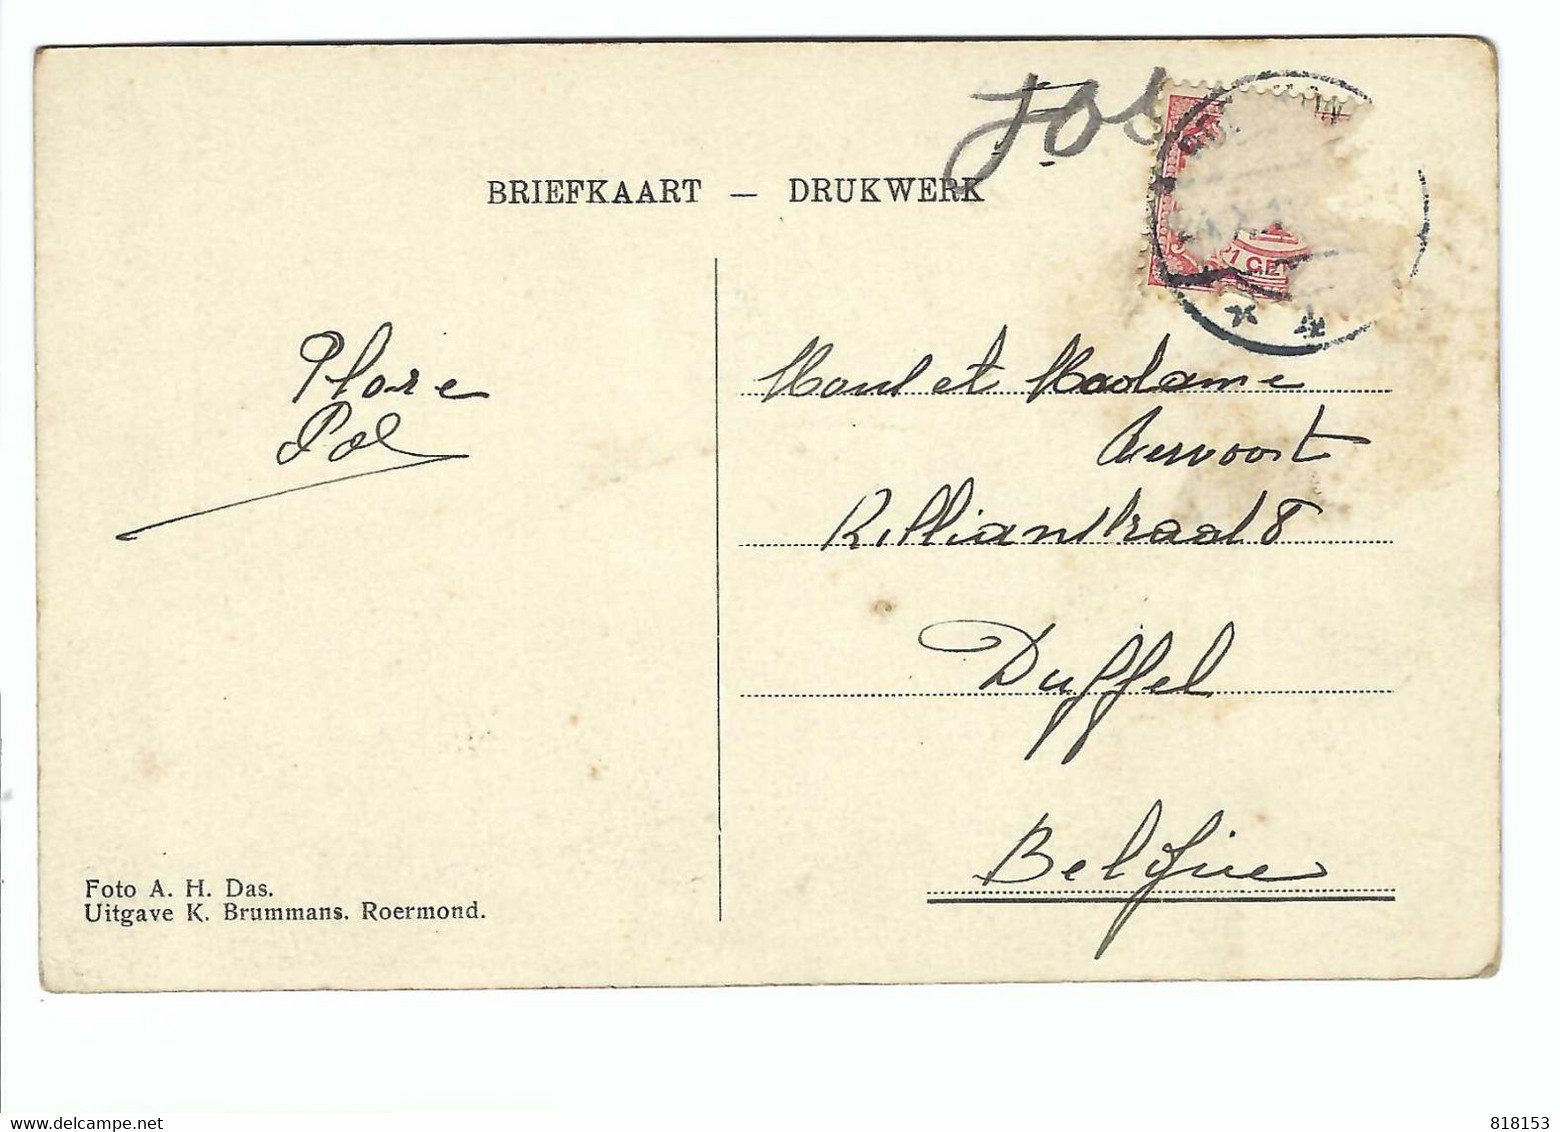 BRIEFKAART — DRUKWERK
Flore
Pol
Monsr et Madame
Vervoort
Kilianstraat 8
Duffel
Belgique
Foto A. H. Das.
Uitgave K. Brummans. Roermond.
818153